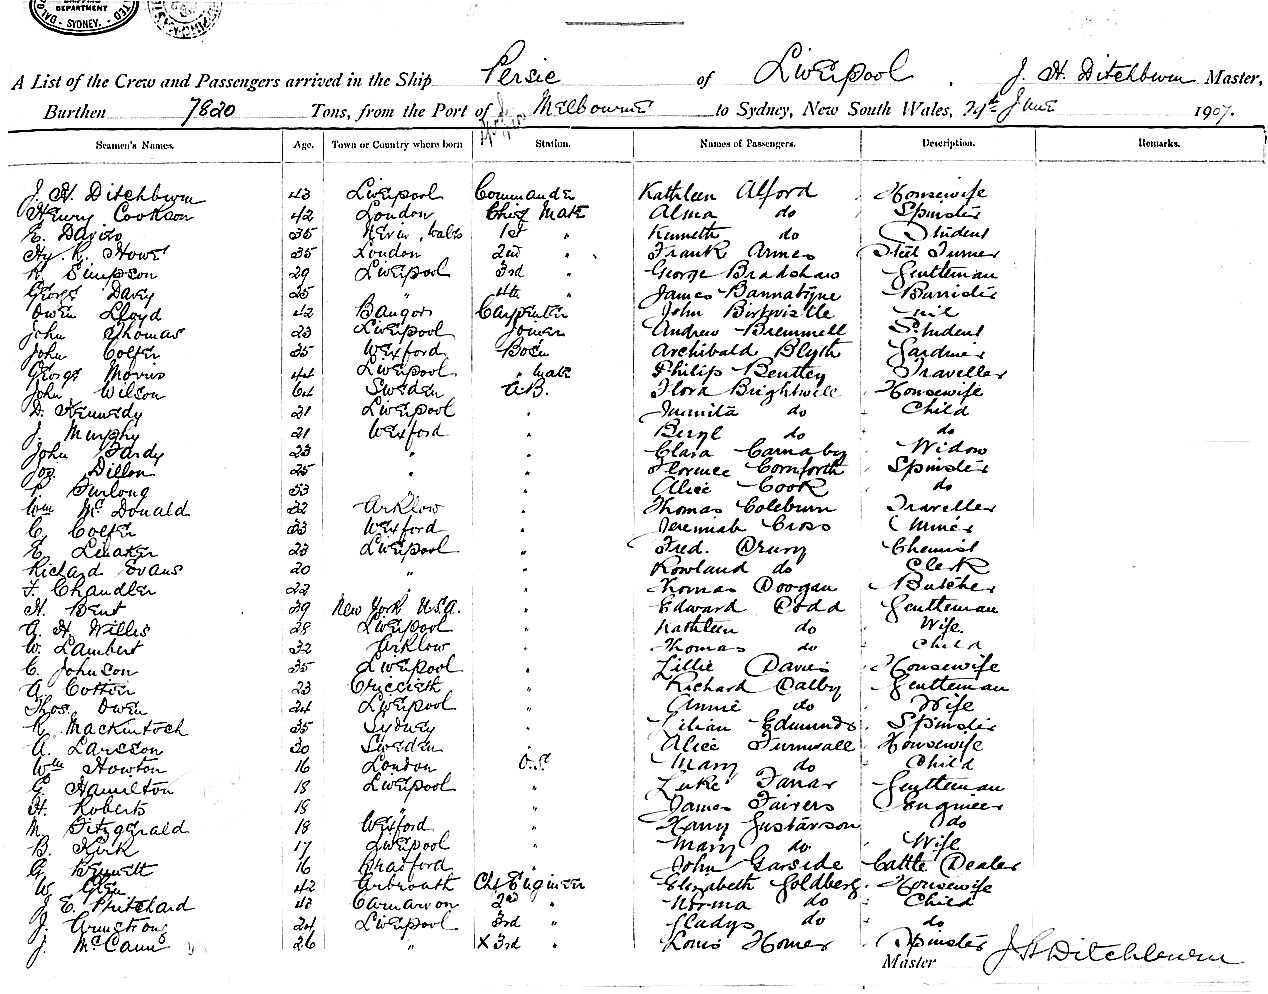 DEPARTMENT
SYDNEY.
A List of the Crew and Passengers arrived in the Ship Persic of Liverpool, J. H. Ditchburn Master,
Burthen 7820 Tons, from the Port of Melbourne to Sydney, New South Wales, 24th June 1907.
Seamen's Names. Age. Town or Country where born Station. Names of Passengers. Description. Remarks.
J. H. Ditchburn 43 Liverpool Commander Kathleen Alford Housewife
Henry Cookson 42 London Chief Mate Alma do Spinster
E. Davids 35 Nevin, Wales 1st " Kenneth do Student
Hy. R. Howe 35 London 2nd " Frank Armes Steel Turner
R. Simpson 29 Liverpool 3rd " George Bradshaw Gentleman
George Davey 25 " 4th " James Bannatyne Barrister
Owen Lloyd 42 Bangor Carpenter John Birtwistle nil
John Thomas 23 Liverpool Joiner Andrew Bremmell Student
John Colfer 35 Wexford Bosn Archibald Blyth Gardner
George Morris 44 Liverpool " Mate Philip Bentley Traveller
John Wilson 64 Sweden A.B. Flora Brightwell Housewife
D. Kennedy 21 Liverpool " Juanita do Child
J. Murphy 21 Wexford " Beryl do do
John Fardy 23 " " Clara Carnaby Widow
Jos. Dillon 25 " " Florence Cornforth Spinster
P. Furlong 53 " " Alice Cook do
Wm McDonald 32 Arklow " Thomas Coleburn Traveller
C. Colfer 33 Wexford " Jeremiah Cross Miner
E. Leaker 23 Liverpool " Fred. Drury Chemist
Richard Evans 20 " " Rowland do Clerk
F. Chandler 22 " " Thomas Doogan Butcher
H. Bent 39 New York U.S.A. " Edward Dodd Gentleman
A. H. Willis 28 Liverpool " Kathleen do Wife.
W. Lambert 32 Arklow " Thomas do Child
C. Johnson 35 Liverpool " Lillie Davies Housewife
A. Cotter 23 Criccieth " Richard Dalby Gentleman
Thos. Owen 24 Liverpool " Annie do Wife
R. Mackintoch 35 Sydney " Lilian Edmunds Spinster
A. Larsson 30 Sweden " Alice Furnwall Housewife
Wm Howton 16 London O.S. Mary do Child
G. Hamilton 18 Liverpool " Luke Fanar Gentleman
H. Roberts 18 " " James Fairers Engineer
M. Fitzgerald 18 Wexford " Harry Gustavson do
B. Kirk 17 Liverpool " Mary do Wife
G. Bennett 16 Bradford " John Garside Cattle Dealer
W. Glen 42 Arbroath Chf Engineer Elizabeth Goldberg Housewife
J. E. Pritchard 43 Carnarvon 2nd " Norma do Child
J. Armstrong 24 Liverpool 3rd " Gladys do do
J. McCann 26 " X 3rd " Louis Homer Spinster
Master J H Ditchburn